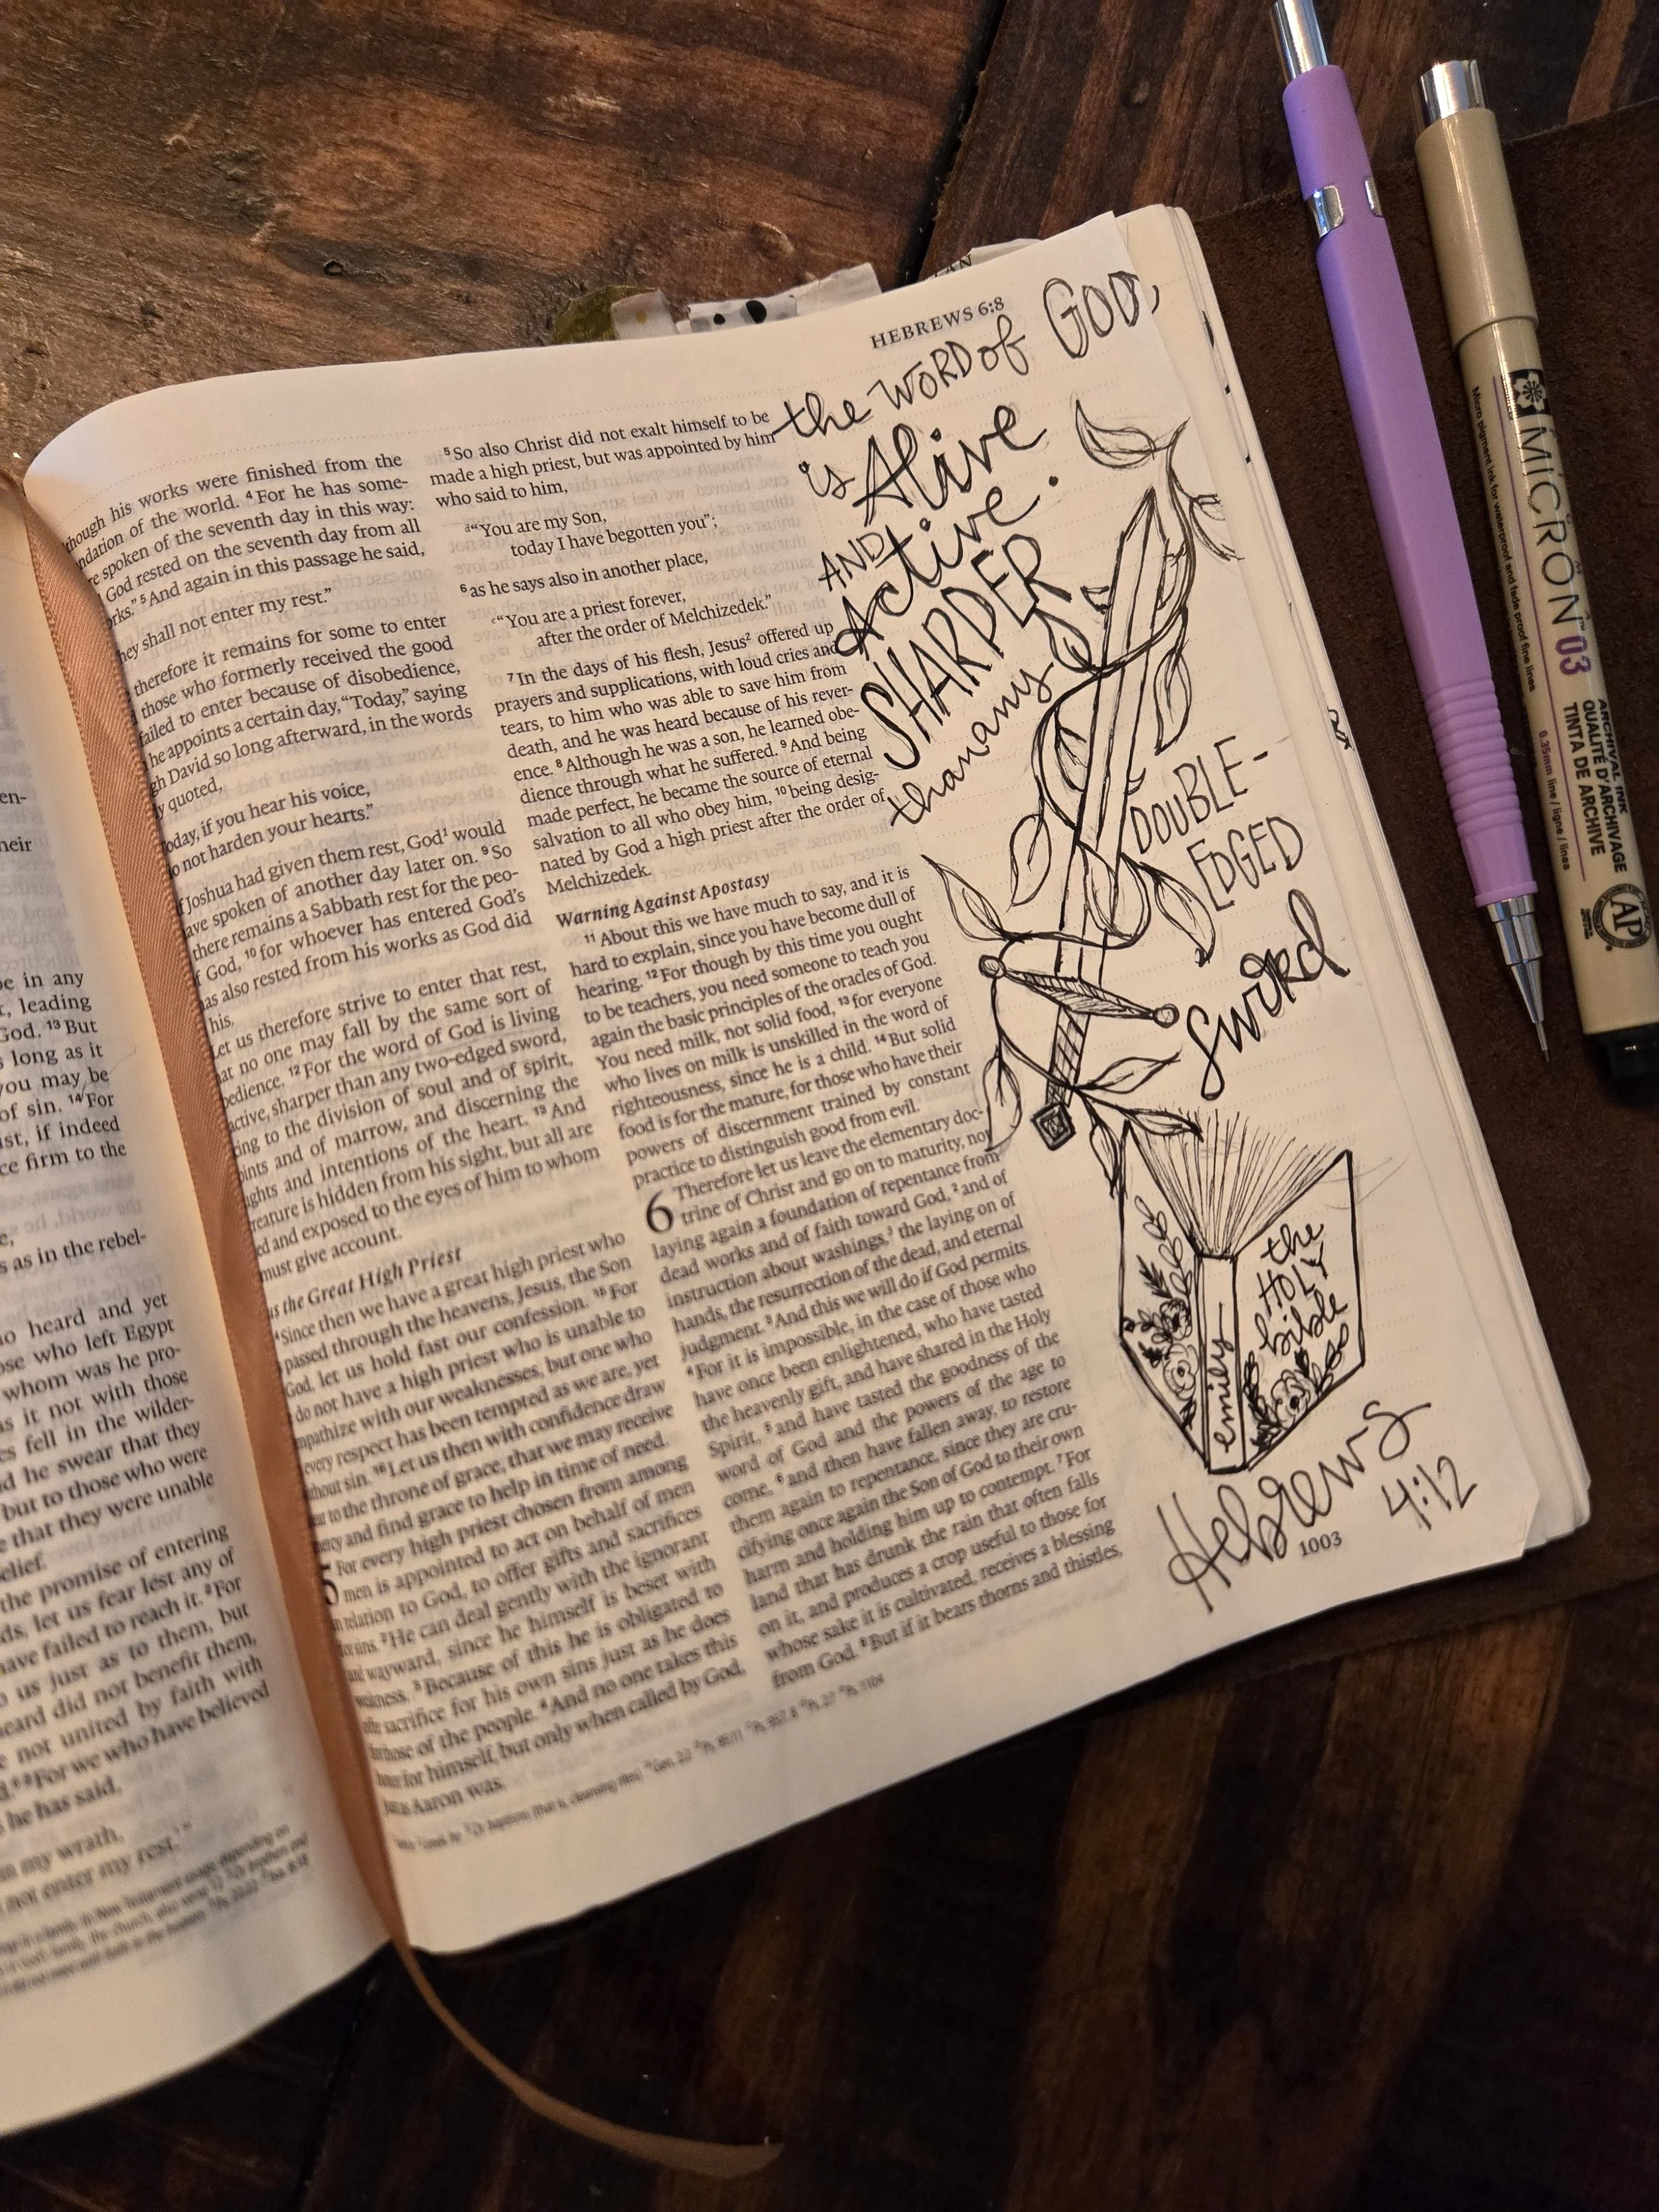 en-
heir
be in any
r, leading
God. ¹³ But
s long as it
you may be
of sin. ¹⁴ For
ist, if indeed
ce firm to the
e,
s as in the rebel-
ho heard and yet
ose who left Egypt
whom was he pro-
as it not with those
es fell in the wilder-
d he swear that they
but to those who were
e that they were unable
elief.
the promise of entering
ds, let us fear lest any of
have failed to reach it. ² For
o us just as to them, but
heard did not benefit them,
e not united by faith with
d. ³ For we who have believed
s he has said,
in my wrath,
not enter my rest.'”
HEBREWS 6:8
though his works were finished from the
ndation of the world. ⁴ For he has some-
re spoken of the seventh day in this way:
God rested on the seventh day from all
orks.” ⁵ And again in this passage he said,
hey shall not enter my rest.”
therefore it remains for some to enter
those who formerly received the good
failed to enter because of disobedience,
he appoints a certain day, “Today,” saying
gh David so long afterward, in the words
y quoted,
oday, if you hear his voice,
o not harden your hearts.”
f Joshua had given them rest, God¹ would
ave spoken of another day later on. ⁹ So
there remains a Sabbath rest for the peo-
f God, ¹⁰ for whoever has entered God's
has also rested from his works as God did
his.
Let us therefore strive to enter that rest,
at no one may fall by the same sort of
bedience. ¹² For the word of God is living
active, sharper than any two-edged sword,
cing to the division of soul and of spirit,
ints and of marrow, and discerning the
ughts and intentions of the heart. ¹³ And
reature is hidden from his sight, but all are
ed and exposed to the eyes of him to whom
must give account.
us the Great High Priest
Since then we have a great high priest who
passed through the heavens, Jesus, the Son
God, let us hold fast our confession. ¹⁵ For
do not have a high priest who is unable to
mpathize with our weaknesses, but one who
every respect has been tempted as we are, yet
thout sin. ¹⁶ Let us then with confidence draw
ar to the throne of grace, that we may receive
ercy and find grace to help in time of need.
5 For every high priest chosen from among
men is appointed to act on behalf of men
in relation to God, to offer gifts and sacrifices
for sins. ² He can deal gently with the ignorant
and wayward, since he himself is beset with
weakness. ³ Because of this he is obligated to
offer sacrifice for his own sins just as he does
for those of the people. ⁴ And no one takes this
honor for himself, but only when called by God,
just as Aaron was.
⁵ So also Christ did not exalt himself to be
made a high priest, but was appointed by him
who said to him,
“You are my Son,
today I have begotten you”;
⁶ as he says also in another place,
“You are a priest forever,
after the order of Melchizedek.”
⁷ In the days of his flesh, Jesus² offered up
prayers and supplications, with loud cries and
tears, to him who was able to save him from
death, and he was heard because of his rever-
ence. ⁸ Although he was a son, he learned obe-
dience through what he suffered. ⁹ And being
made perfect, he became the source of eternal
salvation to all who obey him, ¹⁰ being desig-
nated by God a high priest after the order of
Melchizedek.
Warning Against Apostasy
¹¹ About this we have much to say, and it is
hard to explain, since you have become dull of
hearing. ¹² For though by this time you ought
to be teachers, you need someone to teach you
again the basic principles of the oracles of God.
You need milk, not solid food, ¹³ for everyone
who lives on milk is unskilled in the word of
righteousness, since he is a child. ¹⁴ But solid
food is for the mature, for those who have their
powers of discernment trained by constant
practice to distinguish good from evil.
6 Therefore let us leave the elementary doc-
trine of Christ and go on to maturity, not
laying again a foundation of repentance from
dead works and of faith toward God, ² and of
instruction about washings,³ the laying on of
hands, the resurrection of the dead, and eternal
judgment. ³ And this we will do if God permits.
⁴ For it is impossible, in the case of those who
have once been enlightened, who have tasted
the heavenly gift, and have shared in the Holy
Spirit, ⁵ and have tasted the goodness of the
word of God and the powers of the age to
come, ⁶ and then have fallen away, to restore
them again to repentance, since they are cru-
cifying once again the Son of God to their own
harm and holding him up to contempt. ⁷ For
land that has drunk the rain that often falls
on it, and produces a crop useful to those for
whose sake it is cultivated, receives a blessing
from God. ⁸ But if it bears thorns and thistles,
1003
the WORD of GOD,
is Alive
AND
Active.
SHARPER
than any
DOUBLE-
EDGED
Sword
the
HOLY
bible
emily
Hebrews
4:12
MICRON 03
Micro pigment ink for waterproof and fade proof fine lines
ARCHIVAL INK
QUALITÉ D'ARCHIVAGE
TINTA DE ARCHIVE
0.35mm line / ligne / lines
AP